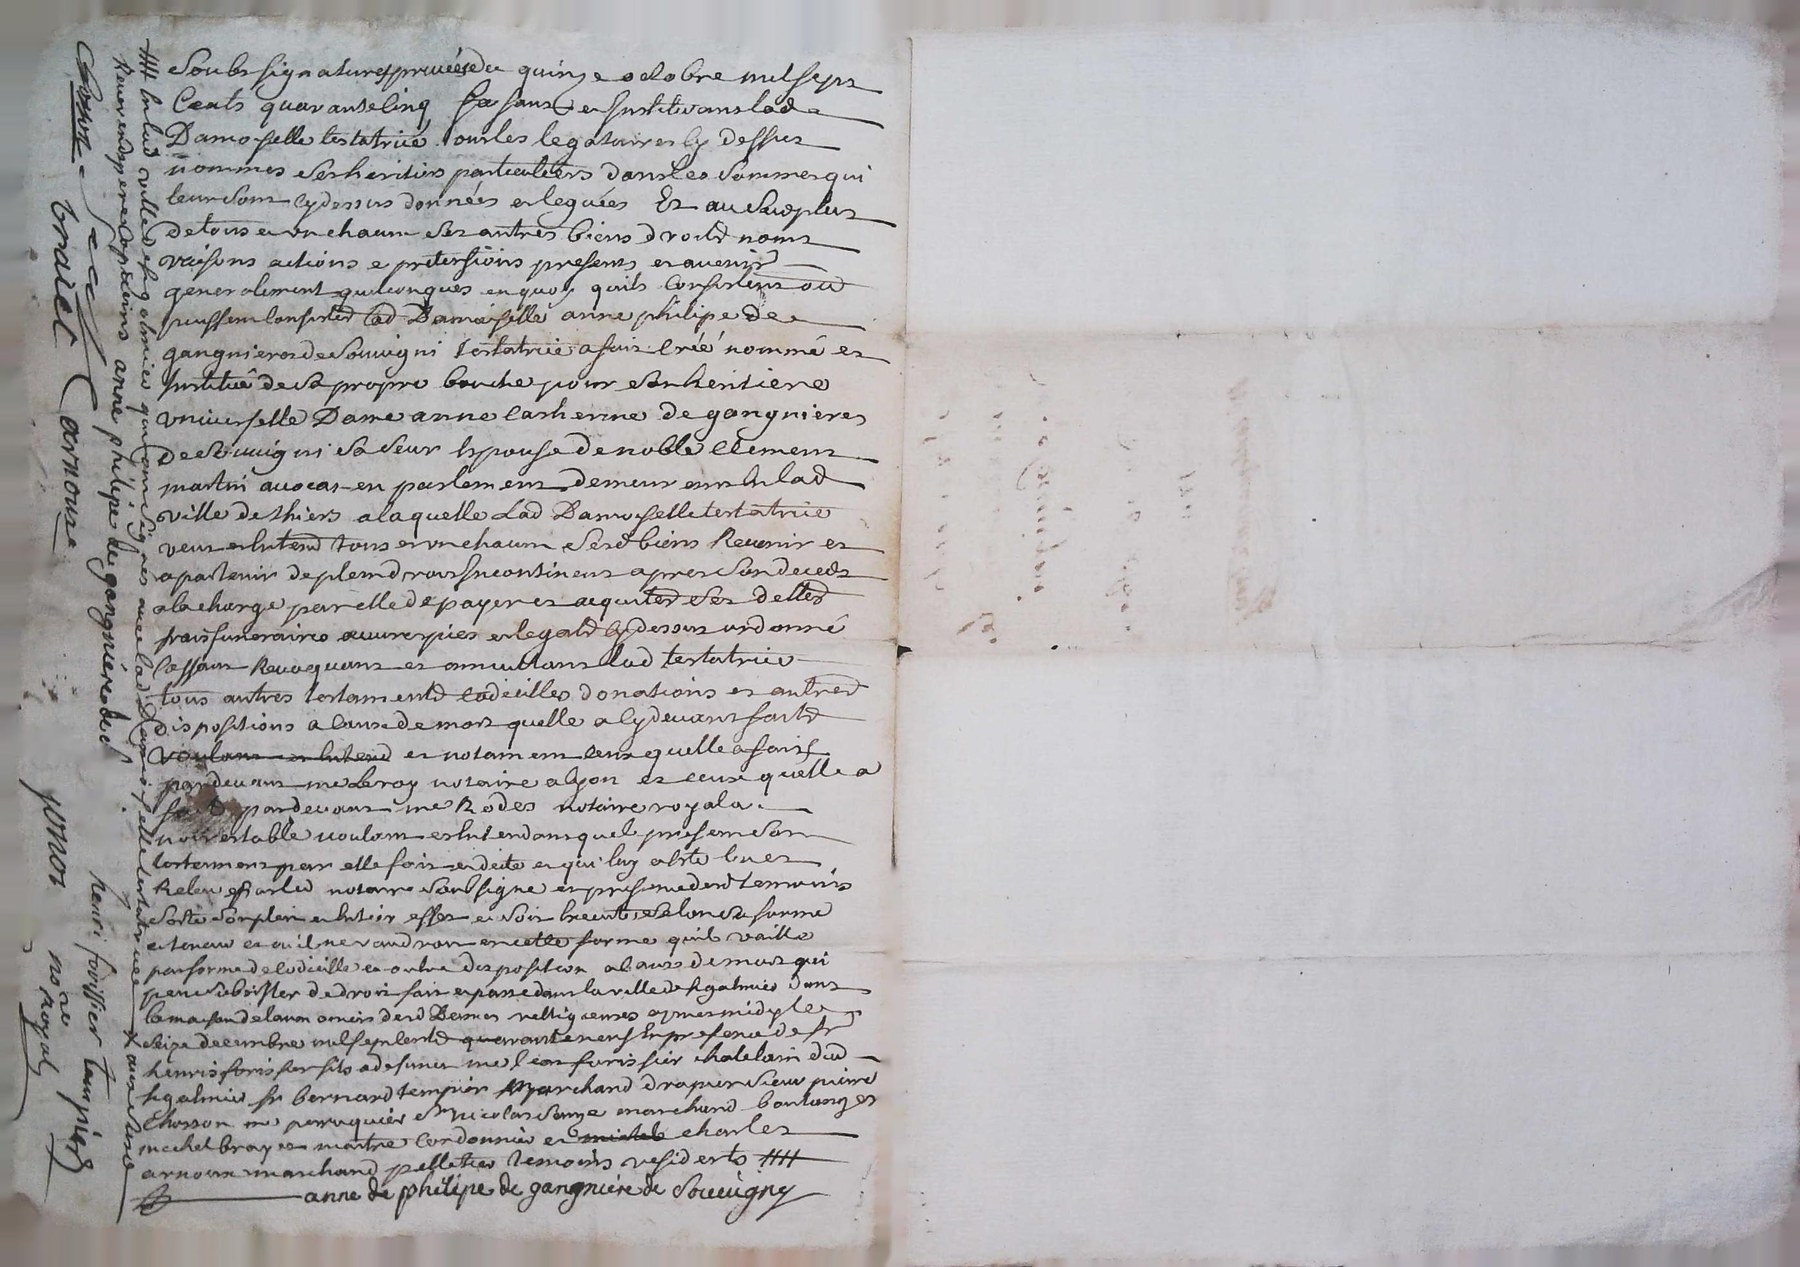 Soubs signatures privées du quinze octobre mil sept
Cents quarante cinq faisant et Instituant lade
Damoiselle testatrice tous les legataires cy dessus
nommes ses heritiers particuliers dans les sommes qui
leur sont cy dessus données et leguées Et au surplus
de tous et un chacun ses autres biens droits noms
raisons actions et pretensions presents et avenir
generalement quelconques en quoy quils consistent ou
puissent consister lad Damoiselle anne philipe de
gangnieres de Souvigni testatrice a fait créé nommé et
Institué de sa propre bouche pour son heritiere
universelle Dame anne Catherine de gangnieres
de Souvigni sa seur Epouse de noble Clement
martin avocat en parlement demeurant en lad
ville de thiers a laquelle Lad Damoiselle testatrice
veut et Entend tous et un chacun sesd biens Revenir et
apartenir de plein droit Incontinent apres son deceds
a la charge par elle de payer et acquiter ses dettes
frais funeraires œuvres pies et legats cy dessus ordonné
Cassant Revoquant et annullant lad testatrice
tous autres testaments codicilles donations et autres
dispositions a cause de mort quelle a cy devant faits
voulant et Entend et notament ceux quelle a fait
pardevant me Leroy notaire a lyon et ceux quelle a
fait pardevant me Rodes notaire royal a
noirestable voulant et Entendant que le present son
testament par elle fait et dicté et qui luy a été lu et
Relu par led notaire soussigné en presence desd temoins
sorte son plein et Entier effet et soit Executé selon sa forme
et teneur et ou il ne vaudroit en cette forme quil vaille
par forme de codicille et autre disposition a cause de mort qui
peut subsister de droit fait et passé dans la ville de st galmier dans
la maison de desd Dames religieuses apres midy le
seize decembre mil sept cents quarante neuf En presence de sr
henri forissier fils a defunct me Leon forissier chatelain dud
st galmier sr bernard tempier marchand drapier sieur pierre
Chosson me peruquier sr nicolas marchand boulanger
michel maitre Cordonnier et michel charles
arnoux marchand pelletier temoins residents ####
anne de philipe de gangniere de Souvigny
#### En lad ville de st galmier qui ont signés avec lad Damoiselle testatrice
Reverends peres Capucins anne philipe de gangnieres de
henri forissier tempier
Chosson Arnoux
ponson nore Royal